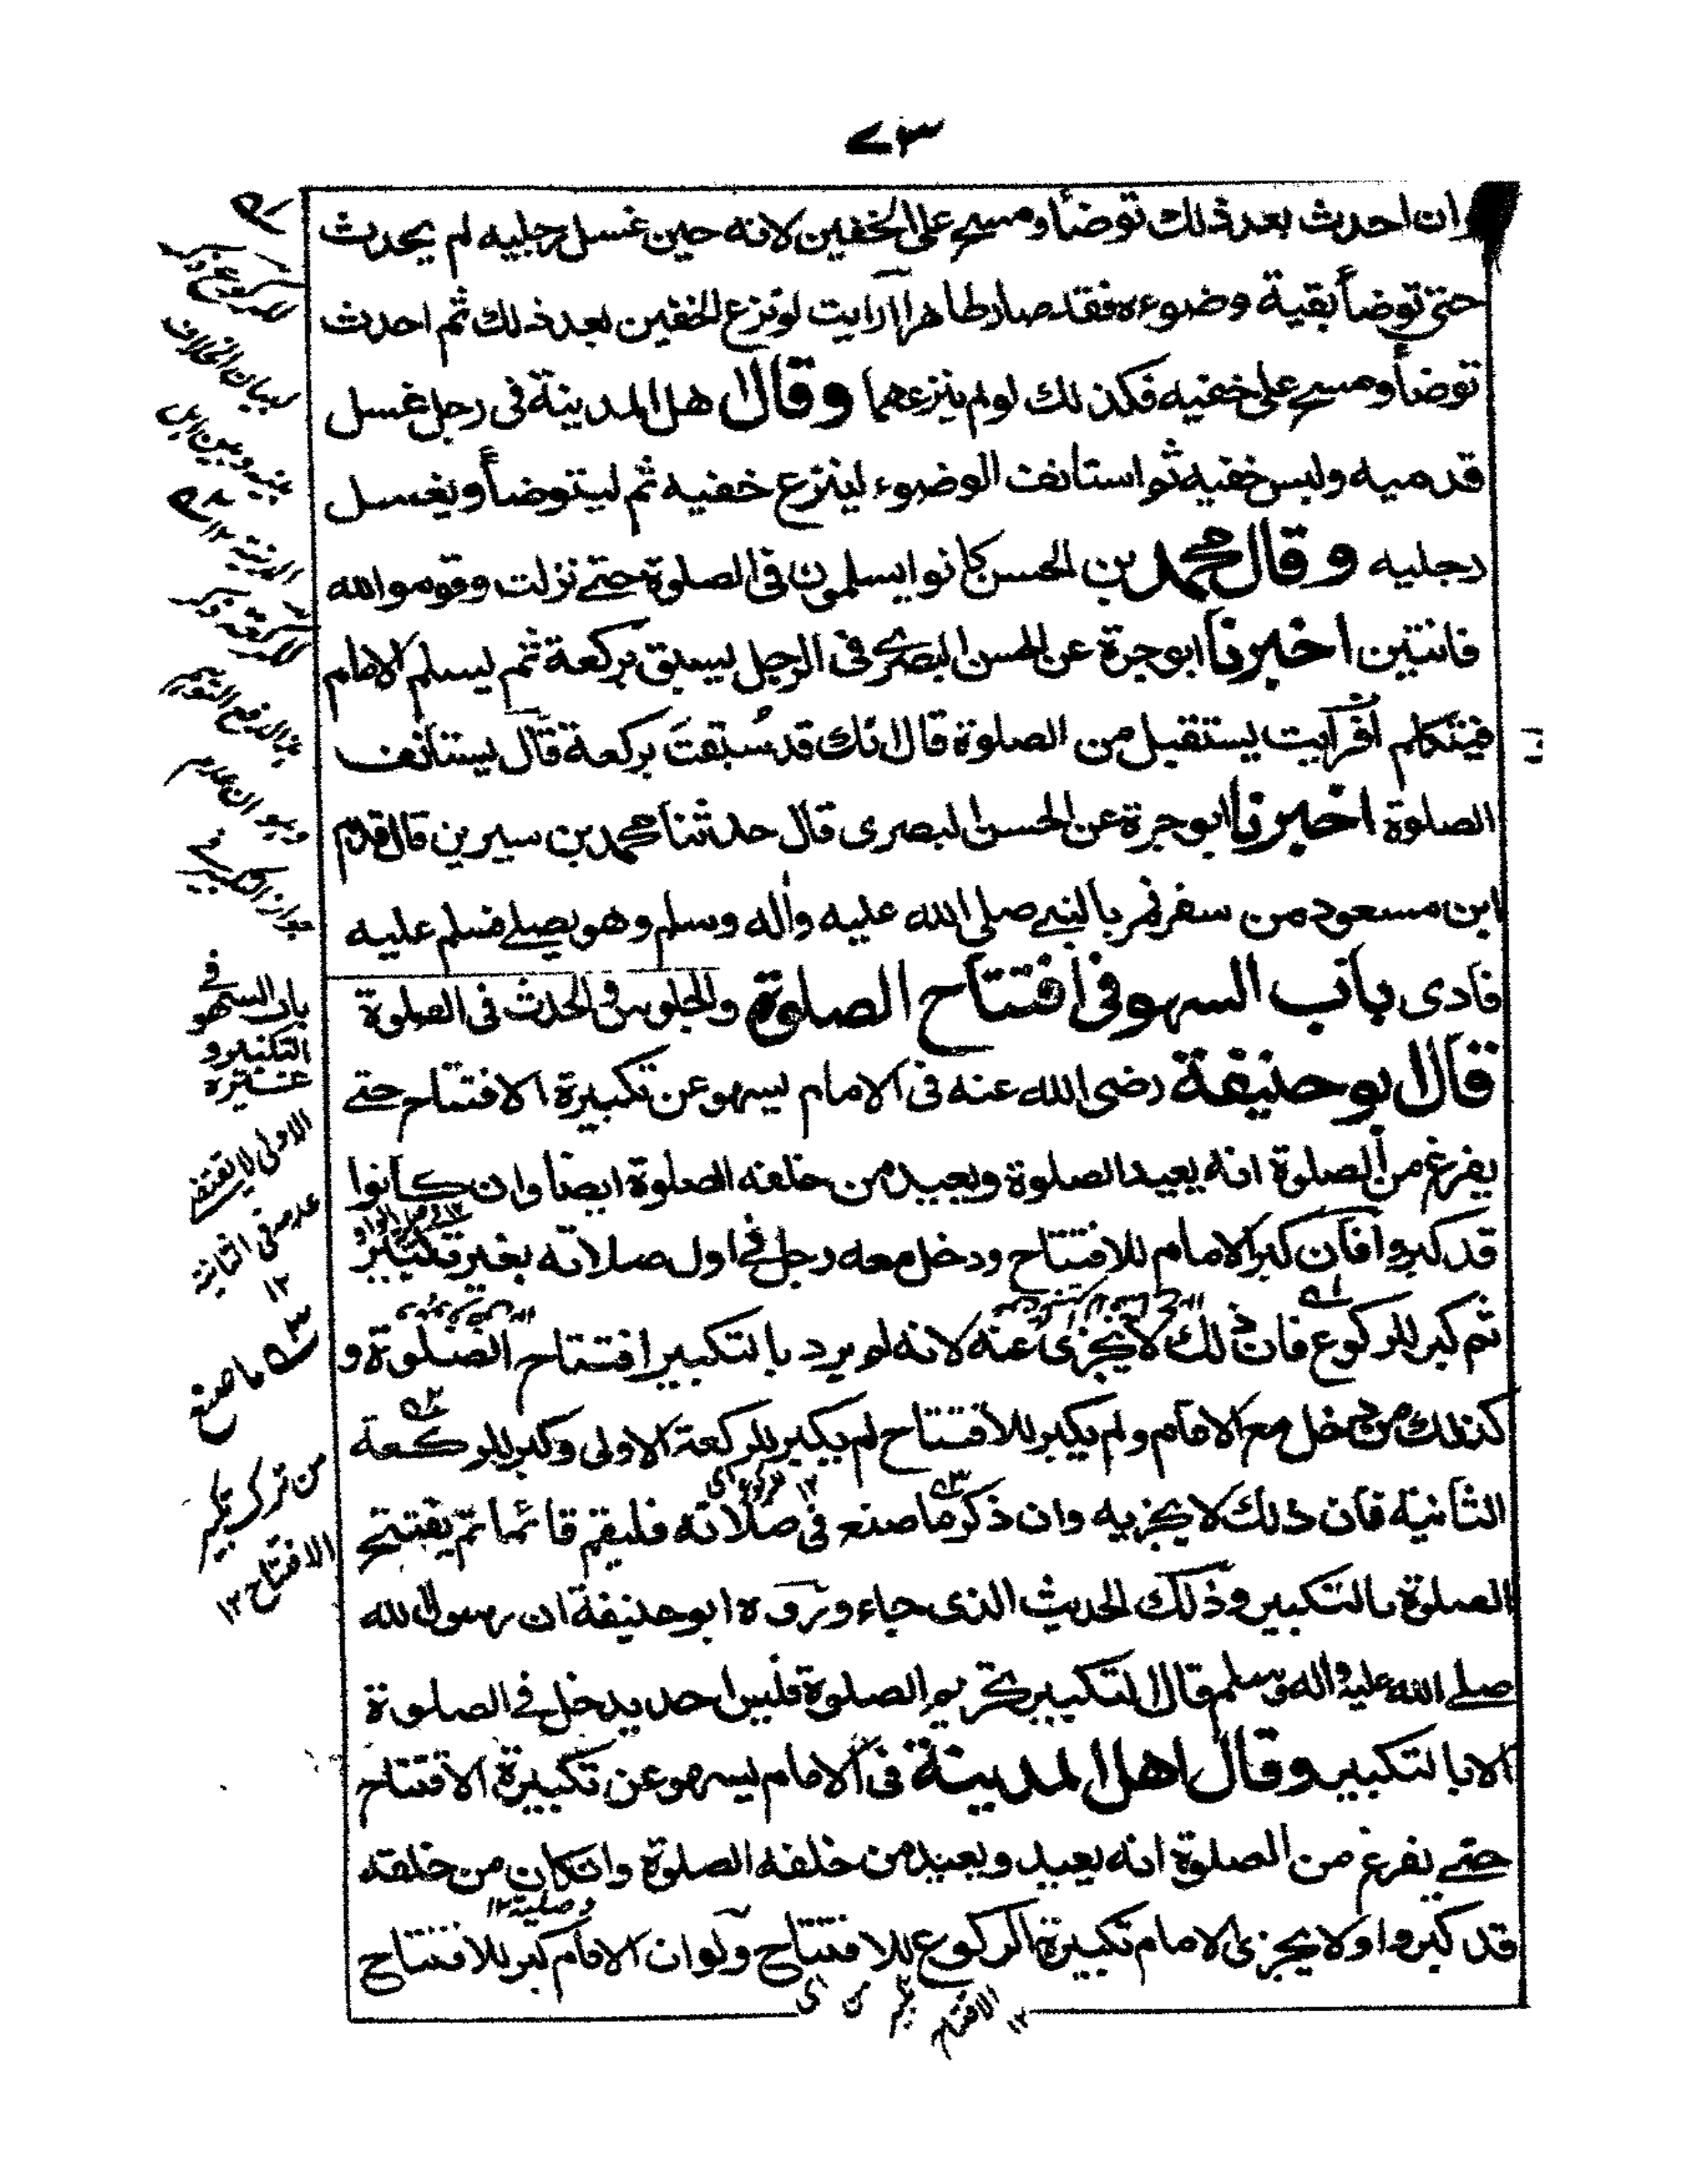 ٧٣
وان احدث بعد ذلك توضأ ومسح على الخفين لانه حين غسل رجليه لم يحدث
حتى توضأ بقية وضوءه فقد صار طاهرا أرايت لو نزع الخفين بعد ذلك ثم احدث
توضأ ومسح على خفيه فكذلك لو لم ينزعهما وقال اهل المدينة فى رجل غسل
قدميه ولبس خفيه ثم استانف الوضوء لينزع خفيه ثم ليتوضأ ويغسل
رجليه وقال محمد بن الحسن كانوا يسلمون فى الصلوة حتى نزلت وقوموا لله
قانتين اخبرنا ابو حرة عن الحسن البصرى فى الرجل يسبق بركعة ثم يسلم الامام
فيتكلم أفرايت يستقبل من الصلوة قال انك قد سُبقتَ بركعة قال يستانف
الصلوة اخبرنا ابو حرة عن الحسن البصرى قال حدثنا محمد بن سيرين قال قدم
ابن مسعود من سفر فمر بالنبى صلى الله عليه واله وسلم وهو يصلى فسلم عليه
فادى باب السهو فى افتتاح الصلوة والجلوس والحدث فى الصلوة
قال ابو حنيفة رضى الله عنه فى الامام يسهو عن تكبيرة الافتتاح حتى
يفرغ من الصلوة انه يعيد الصلوة ويعيد من خلفه الصلوة ايضا وان كانوا
قد كبروا فان كبر الامام للافتتاح ودخل معه رجل فى اول صلاته بغير تكبير
ثم كبر للركوع فان ذلك لا يجزى عنه لانه لو يرد بالتكبير افتتاح الصلوة و
كذلك من دخل مع الامام ولم يكبر للافتتاح لم يكبر للركعة الاولى وكبر للركعة
الثانية فان ذلك لا يجزيه وان ذكر ما صنع فى صلاته فليقم قائما ثم يفتتح
الصلوة بالتكبير وذلك الحديث الذى جاء ويروه ابو حنيفة ان رسول الله
صلى الله عليه واله وسلم قال التكبير تحريم الصلوة فليس احد يدخل فى الصلوة
الا بالتكبير وقال اهل المدينة فى الامام يسهو عن تكبيرة الافتتاح
حتى يفرغ من الصلوة انه يعيد ويعيد من خلفه الصلوة وان كان من خلفه
وصلية ١٢
قد كبروا ولا يجزى الامام تكبيرة الركوع للافتتاح ولو ان الامام كبر للافتتاح
باب السهو فى
التكبير و
غيره
ما صنع
من ترك تكبير
الافتتاح ١٢